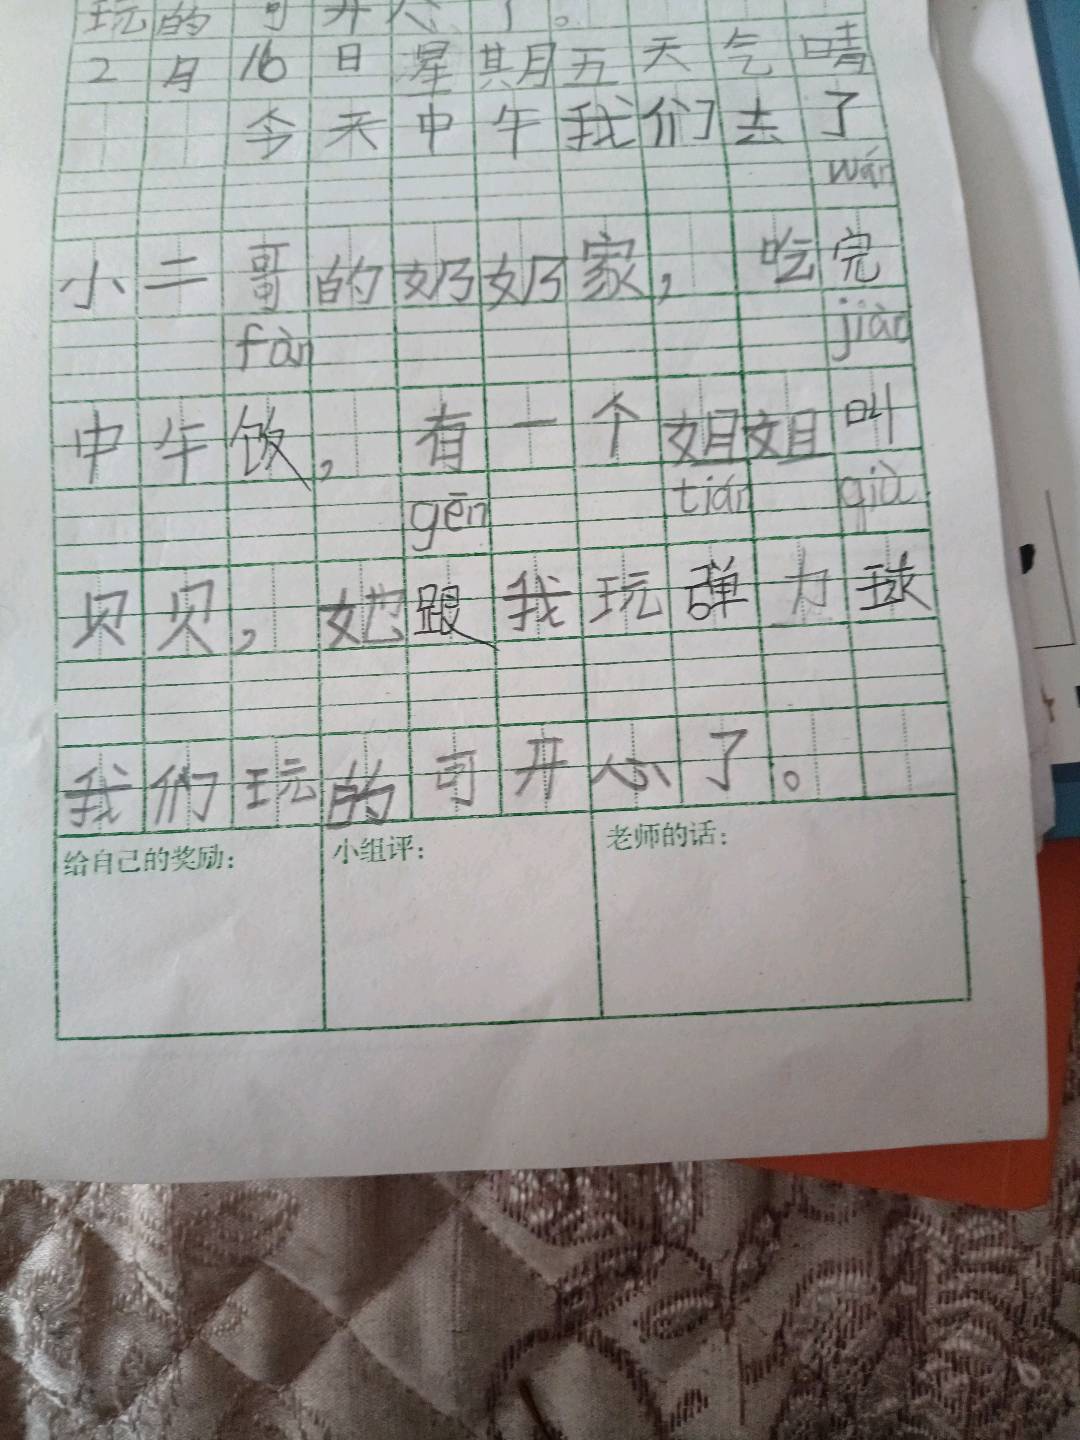 玩的可开心了。
2月16日星期五天气晴
今天中午我们去了
wán
小二哥的奶奶家，吃完
fàn jiào
中午饭，有一个姐姐叫
gēn tián qiú
贝贝，她跟我玩弹力球
我们玩的可开心了。
给自己的奖励：
小组评：
老师的话：